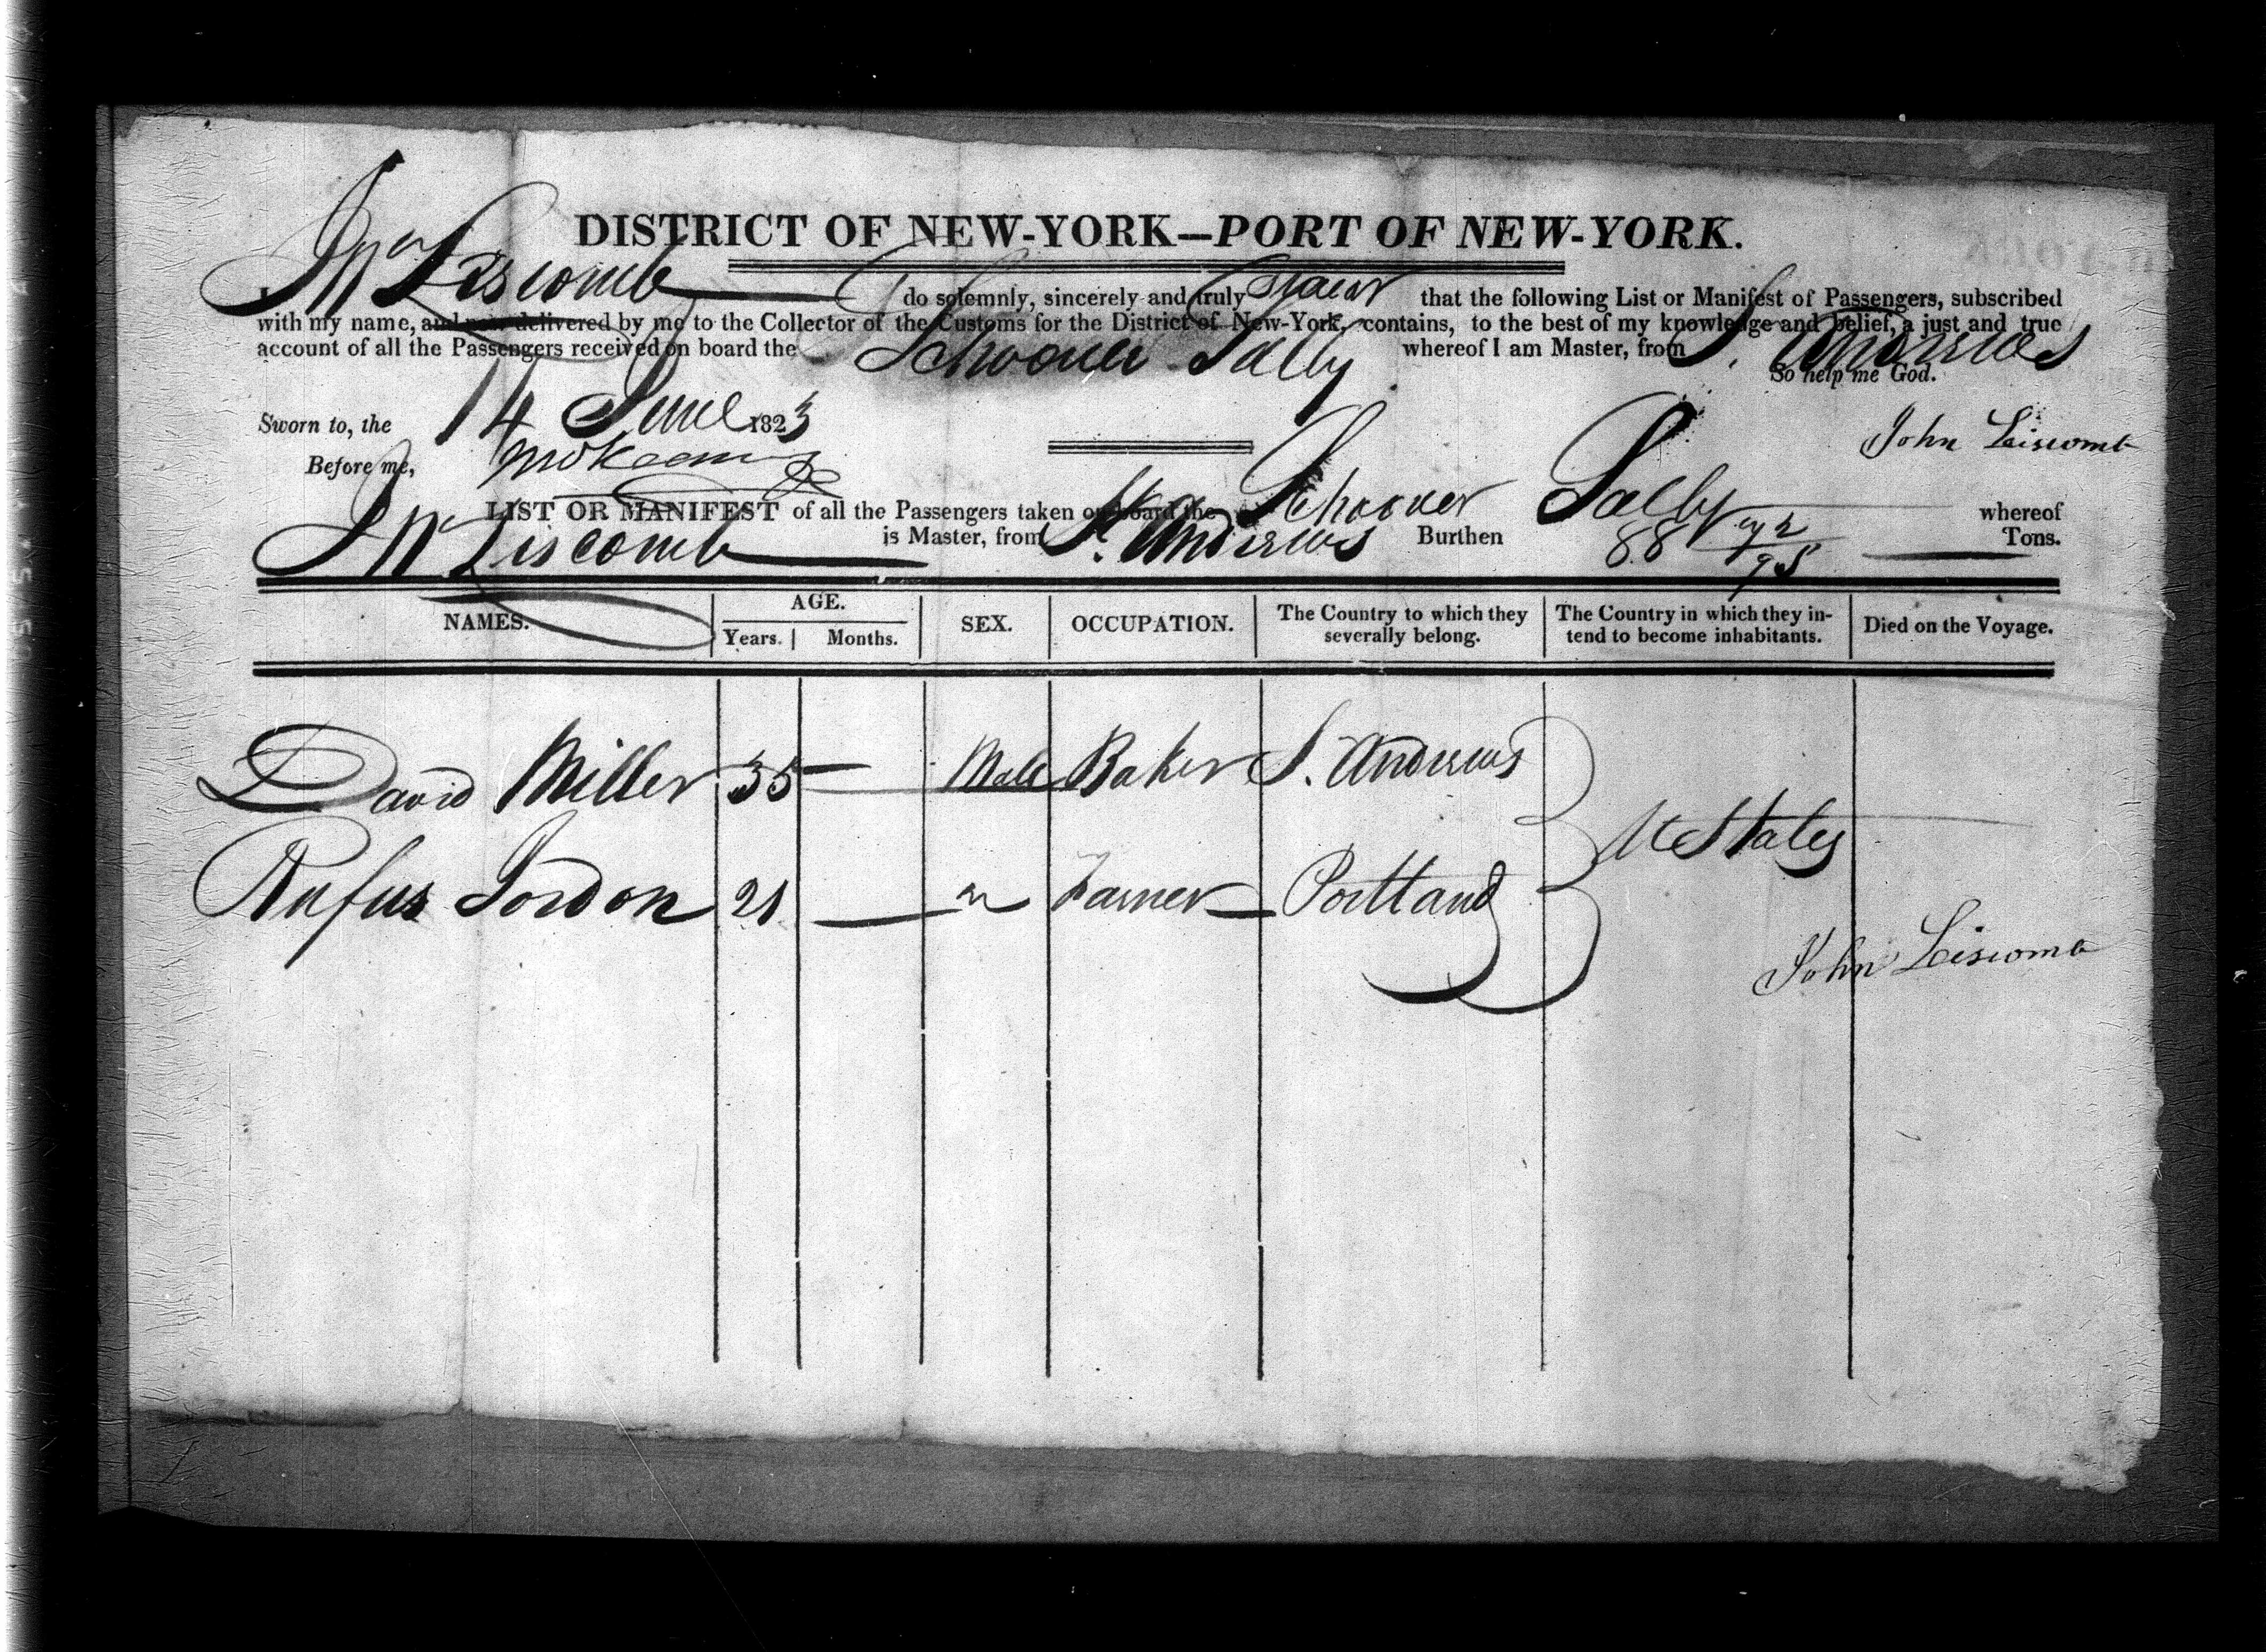 DISTRICT OF NEW-YORK—PORT OF NEW-YORK.
I Jno Liscomb do solemnly, sincerely and truly swear that the following List or Manifest of Passengers, subscribed
with my name, and now delivered by me to the Collector of the Customs for the District of New-York, contains, to the best of my knowledge and belief, a just and true
account of all the Passengers received on board the Schooner Sally whereof I am Master, from St. Andrews
So help me God.
Sworn to, the 14 June 1823
John Liscomb
Before me,
LIST OR MANIFEST of all the Passengers taken on board the Schooner Sally whereof
Jno Liscomb is Master, from St. Andrews Burthen 88 92/95 Tons.
NAMES. AGE. Years. Months. SEX. OCCUPATION. The Country to which they severally belong. The Country in which they intend to become inhabitants. Died on the Voyage.
David Miller 35 — Male Baker St. Andrews
U States
Rufus Jordon 21 — " Farmer Portland
John Liscomb